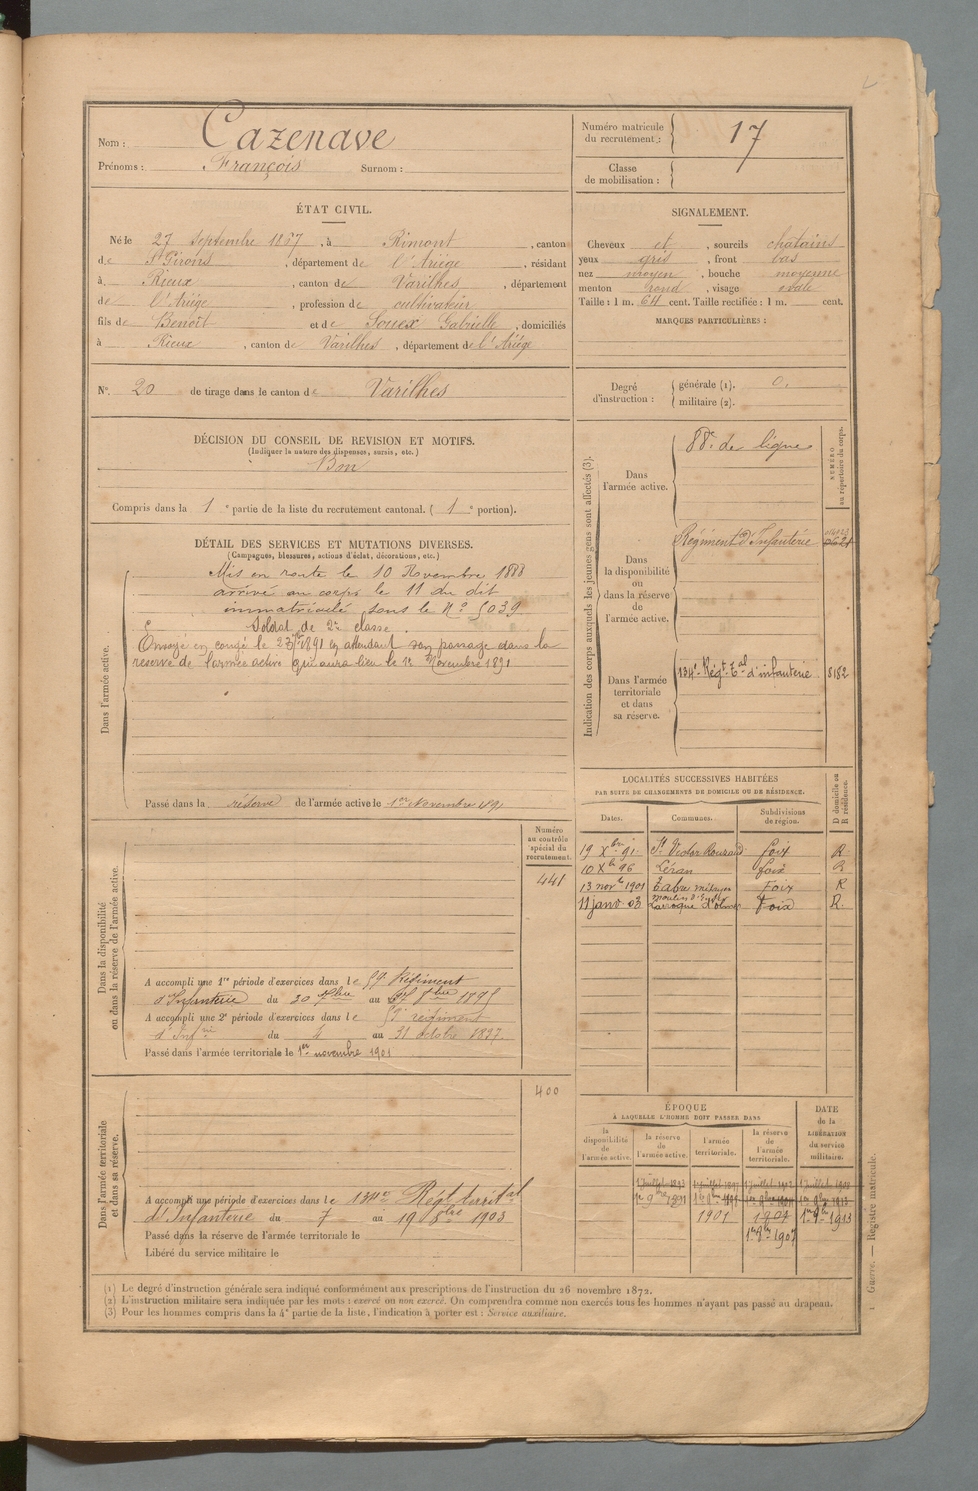 Nom : Cazenave
Prénoms : François Surnom :
Numéro matricule du recrutement : 17
Classe de mobilisation :
ÉTAT CIVIL.
Né le 27 septembre 1867, à Rimont, canton
de St Girons, département de l'Ariège, résidant
à Rieux, canton de Varilhes, département
de l'Ariège, profession de cultivateur
fils de Benoît et de Souex Gabrielle, domiciliés
à Rieux, canton de Varilhes, département de l'Ariège
N° 20 de tirage dans le canton de Varilhes
SIGNALEMENT.
Cheveux et, sourcils chatains
yeux gris, front bas
nez moyen, bouche moyenne
menton rond, visage ovale
Taille : 1 m. 64 cent. Taille rectifiée : 1 m. cent.
MARQUES PARTICULIÈRES :
Degré d'instruction : générale (1). 0.
militaire (2).
DÉCISION DU CONSEIL DE REVISION ET MOTIFS.
(Indiquer la nature des dispenses, sursis, etc.)
Bon
Compris dans la 1e partie de la liste du recrutement cantonal. ( 1e portion).
DÉTAIL DES SERVICES ET MUTATIONS DIVERSES.
(Campagnes, blessures, actions d'éclat, décorations, etc.)
Dans l'armée active.
Mis en route le 10 Novembre 1888
arrivé au corps le 11 du dit
immatriculé sous le N° 5039
Soldat de 2e classe.
Envoyé en congé le 23 1891 en attendant son passage dans la
réserve de l'armée active qui aura lieu le 1er Novembre 1891
Passé dans la réserve de l'armée active le 1er Novembre 1891
Indication des corps auxquels les jeunes gens sont affectés (3).
NUMÉRO au répertoire du corps.
Dans l'armée active.
88e de ligne
Dans la disponibilité ou dans la réserve de l'armée active.
Régiment d'Infanterie
Dans l'armée territoriale et dans sa réserve.
134e Régt Tal d'infanterie 8182
LOCALITÉS SUCCESSIVES HABITÉES
PAR SUITE DE CHANGEMENTS DE DOMICILE OU DE RÉSIDENCE.
D domicile ou R résidence.
Dates. Communes. Subdivisions de région.
19 Xbre 91 St Victor Rouzaud foix R
10 Xbre 96 Léran foix R
13 novbre 1901 Tabre Foix R
11 janv. 03 Laroque d'olmes Foix R.
Dans la disponibilité ou dans la réserve de l'armée active.
Numéro au contrôle spécial du recrutement.
441
A accompli une 1re période d'exercices dans le 59e Régiment
d'Infanterie du 30 7bre au 8bre 1895
A accompli une 2e période d'exercices dans le 59e régiment
d'Infrie du 4 au 31 octobre 1897
Passé dans l'armée territoriale le 1er novembre 1901
Dans l'armée territoriale et dans sa réserve.
400
A accompli une période d'exercices dans le 134e Régt territal
d'Infanterie du 7 au 19 8bre 1903
Passé dans la réserve de l'armée territoriale le
Libéré du service militaire le
ÉPOQUE
À LAQUELLE L'HOMME DOIT PASSER DANS
DATE de la LIBÉRATION du service militaire.
la disponibilité de l'armée active.
la réserve de l'armée active.
l'armée territoriale.
la réserve de l'armée territoriale.
1901 1907 1er 9bre 1913
1er 8bre 1907
(1) Le degré d'instruction générale sera indiqué conformément aux prescriptions de l'instruction du 26 novembre 1872.
(2) L'instruction militaire sera indiquée par les mots : exercé ou non exercé. On comprendra comme non exercés tous les hommes n'ayant pas passé au drapeau.
(3) Pour les hommes compris dans la 4e partie de la liste, l'indication à porter est : Service auxiliaire.
1 Guerre. — Registre matricule.